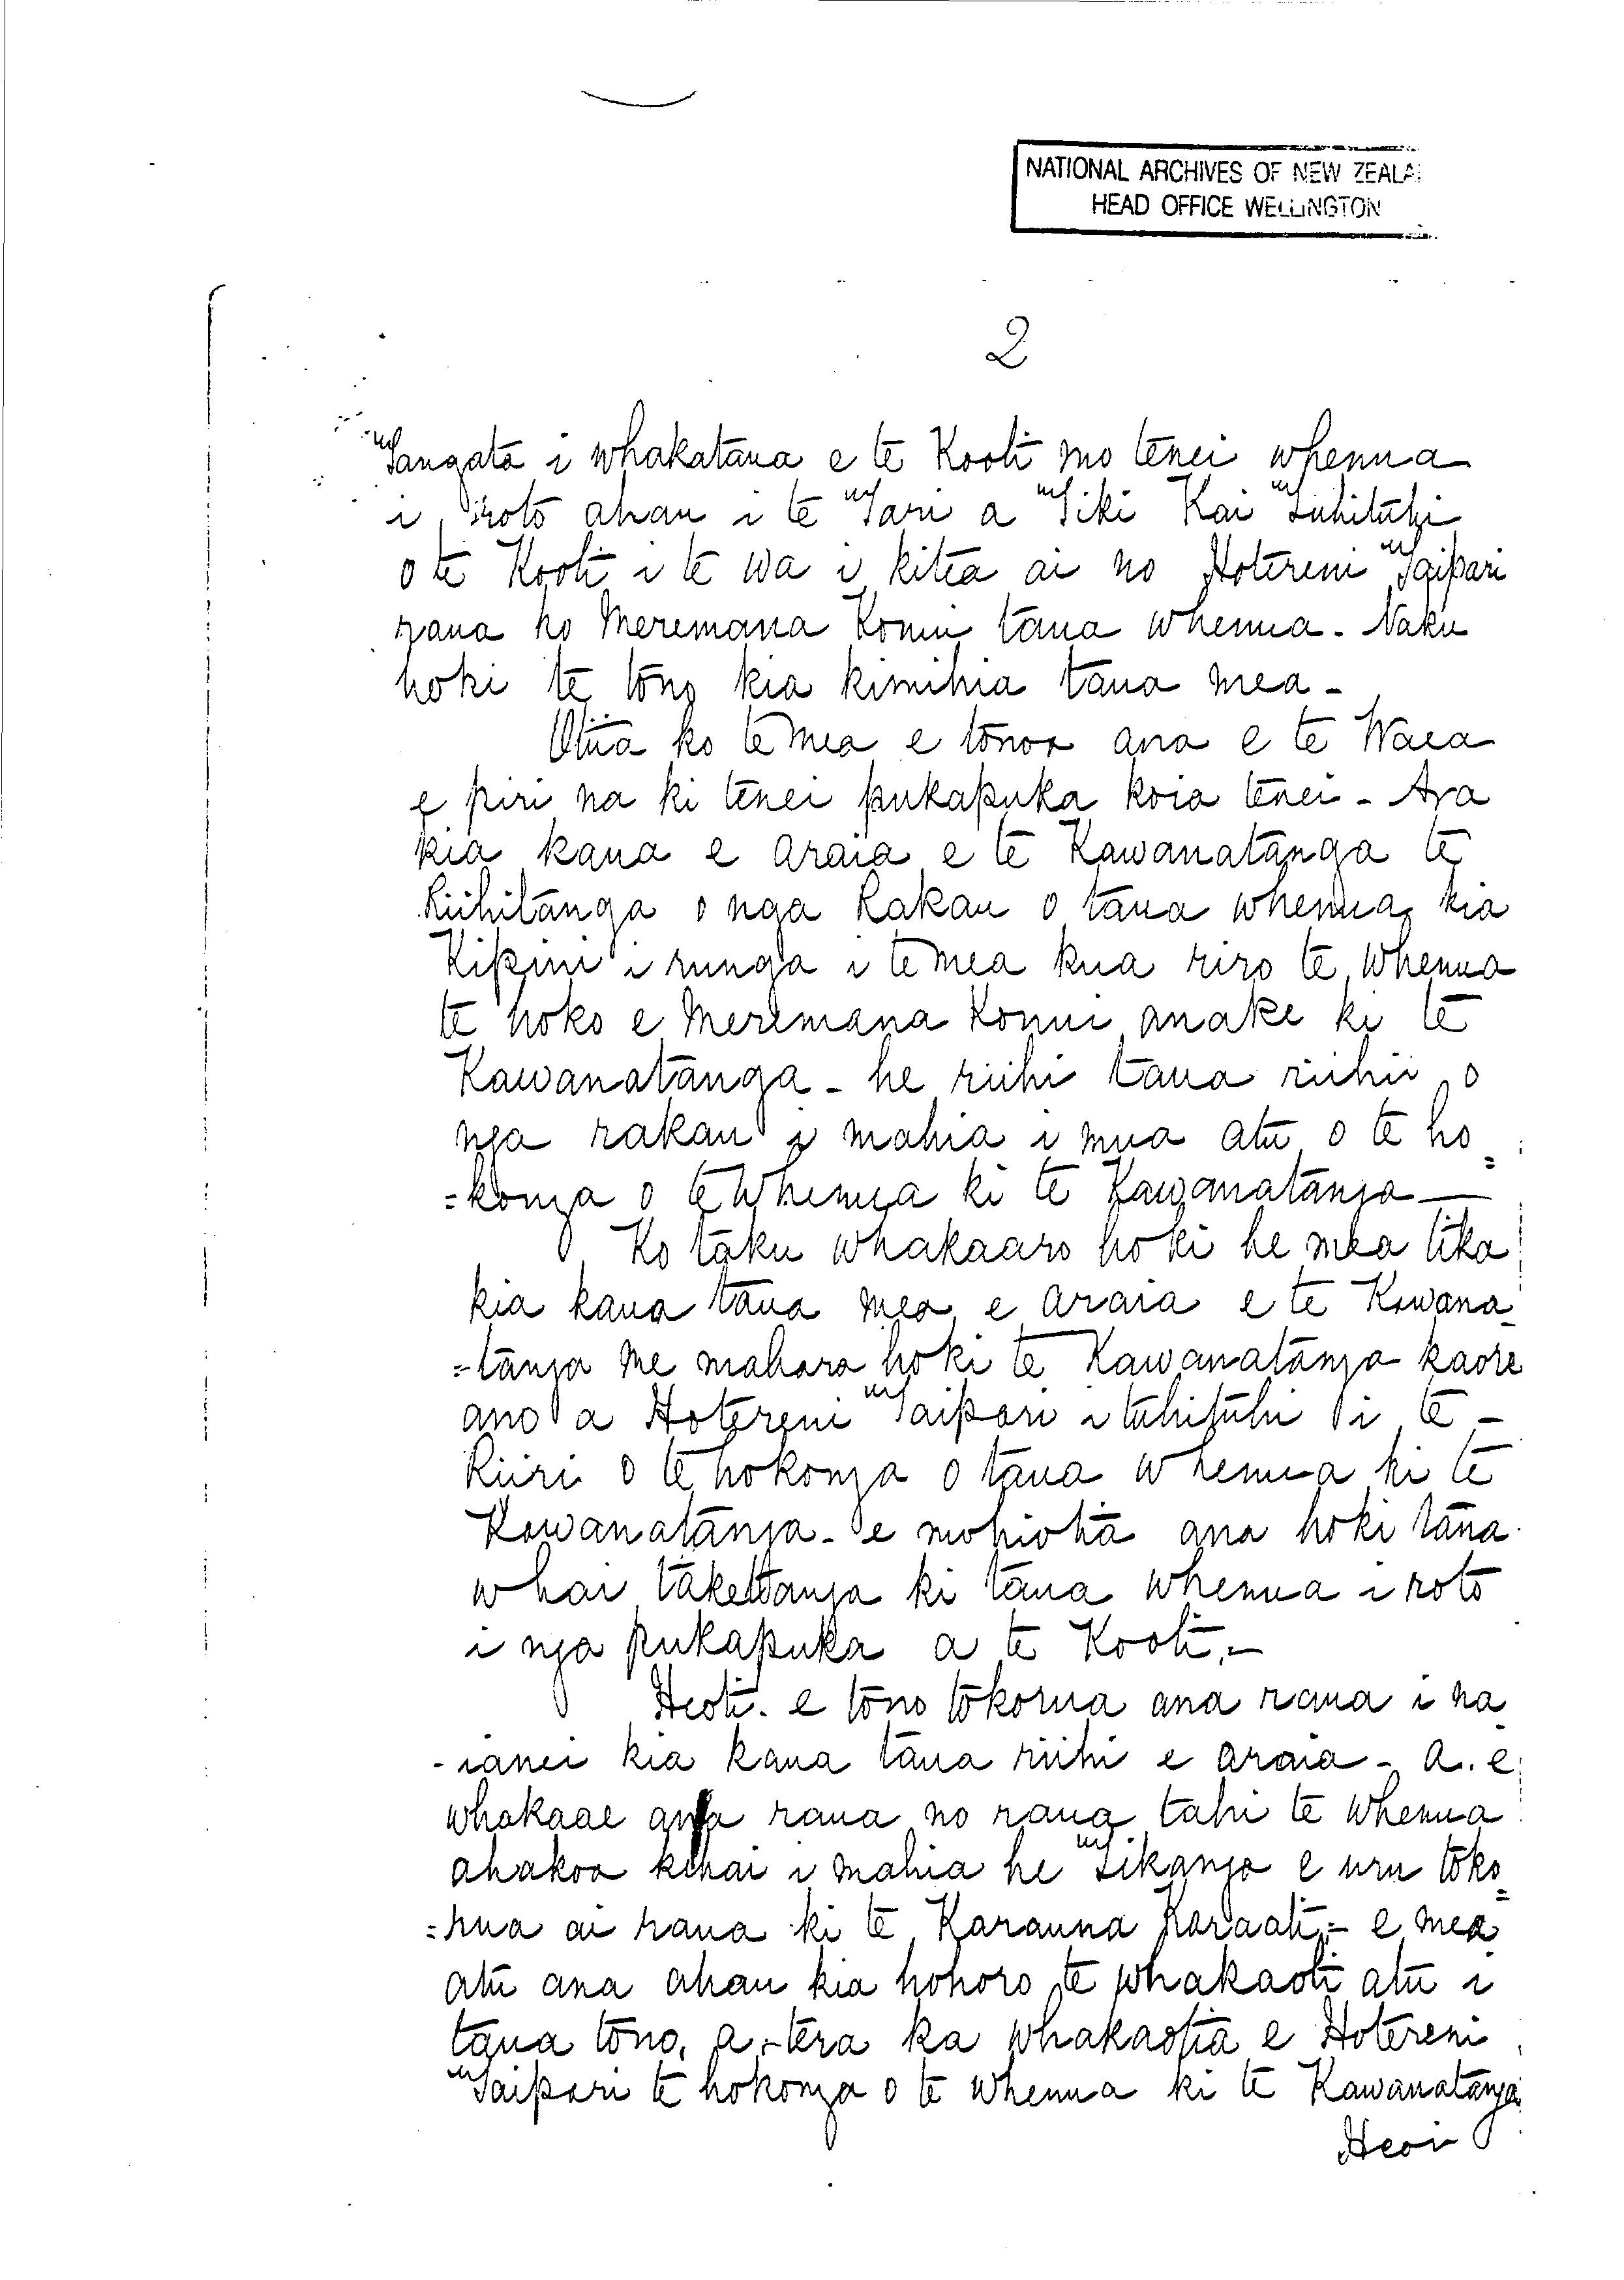 NATIONAL ARCHIVES OF NEW ZEALA
HEAD OFFICE WELLINGTON
2
Tangata i whakataua e te Kooti mo tenei whenua
i roto ahau i te Tari a Tiki Kai Tuhituhi
o te Kooti i te wa i kitea ai no Hotereni Taipari
raua ko Meremana Konui taua whenua. Naku
hoki te tono kia kimihia taua mea -
Otiia ko te mea e tonoa ana e te Waea
e piri na ki tenei pukapuka koia tenei - Ara
kia kaua e araia e te Kawanatanga te
Riihitanga o nga Rakau o taua whenua kia
Kipini i runga i te mea kua riro te whenua
te hoko e Meremana Konui anake ki te
Kawanatanga - he riihi taua riihi o
nga rakau i mahia i mua atu o te ho=
=konga o te Whenua ki te Kawanatanga —
Ko taku whakaaro hoki he mea tika
kia kaua taua mea e araia e te Kawana=
=tanga me mahara hoki te Kawanatanga kaore
ano a Hotereni Taipari i tuhituhi i te -
Riiri o te hokonga o taua whenua ki te
Kawanatanga - e mohiotia ana hoki tana
whai taketanga ki taua whenua i roto
i nga pukapuka a te Kooti. -
Heoti. e tono tokorua ana raua i na
- ianei kia kaua taua riihi e araia - a. e
whakaae ana raua no raua tahi te whenua
ahakoa kihai i mahia he Tikanga e uru toko=
=rua ai raua ki te Karauna Karaati - e mea
atu ana ahau kia hohoro te whakaoti atu i
taua tono, a - tera ka whakaotia e Hotereni
Taipari te hokonga o te whenua ki te Kawanatanga
Heoi